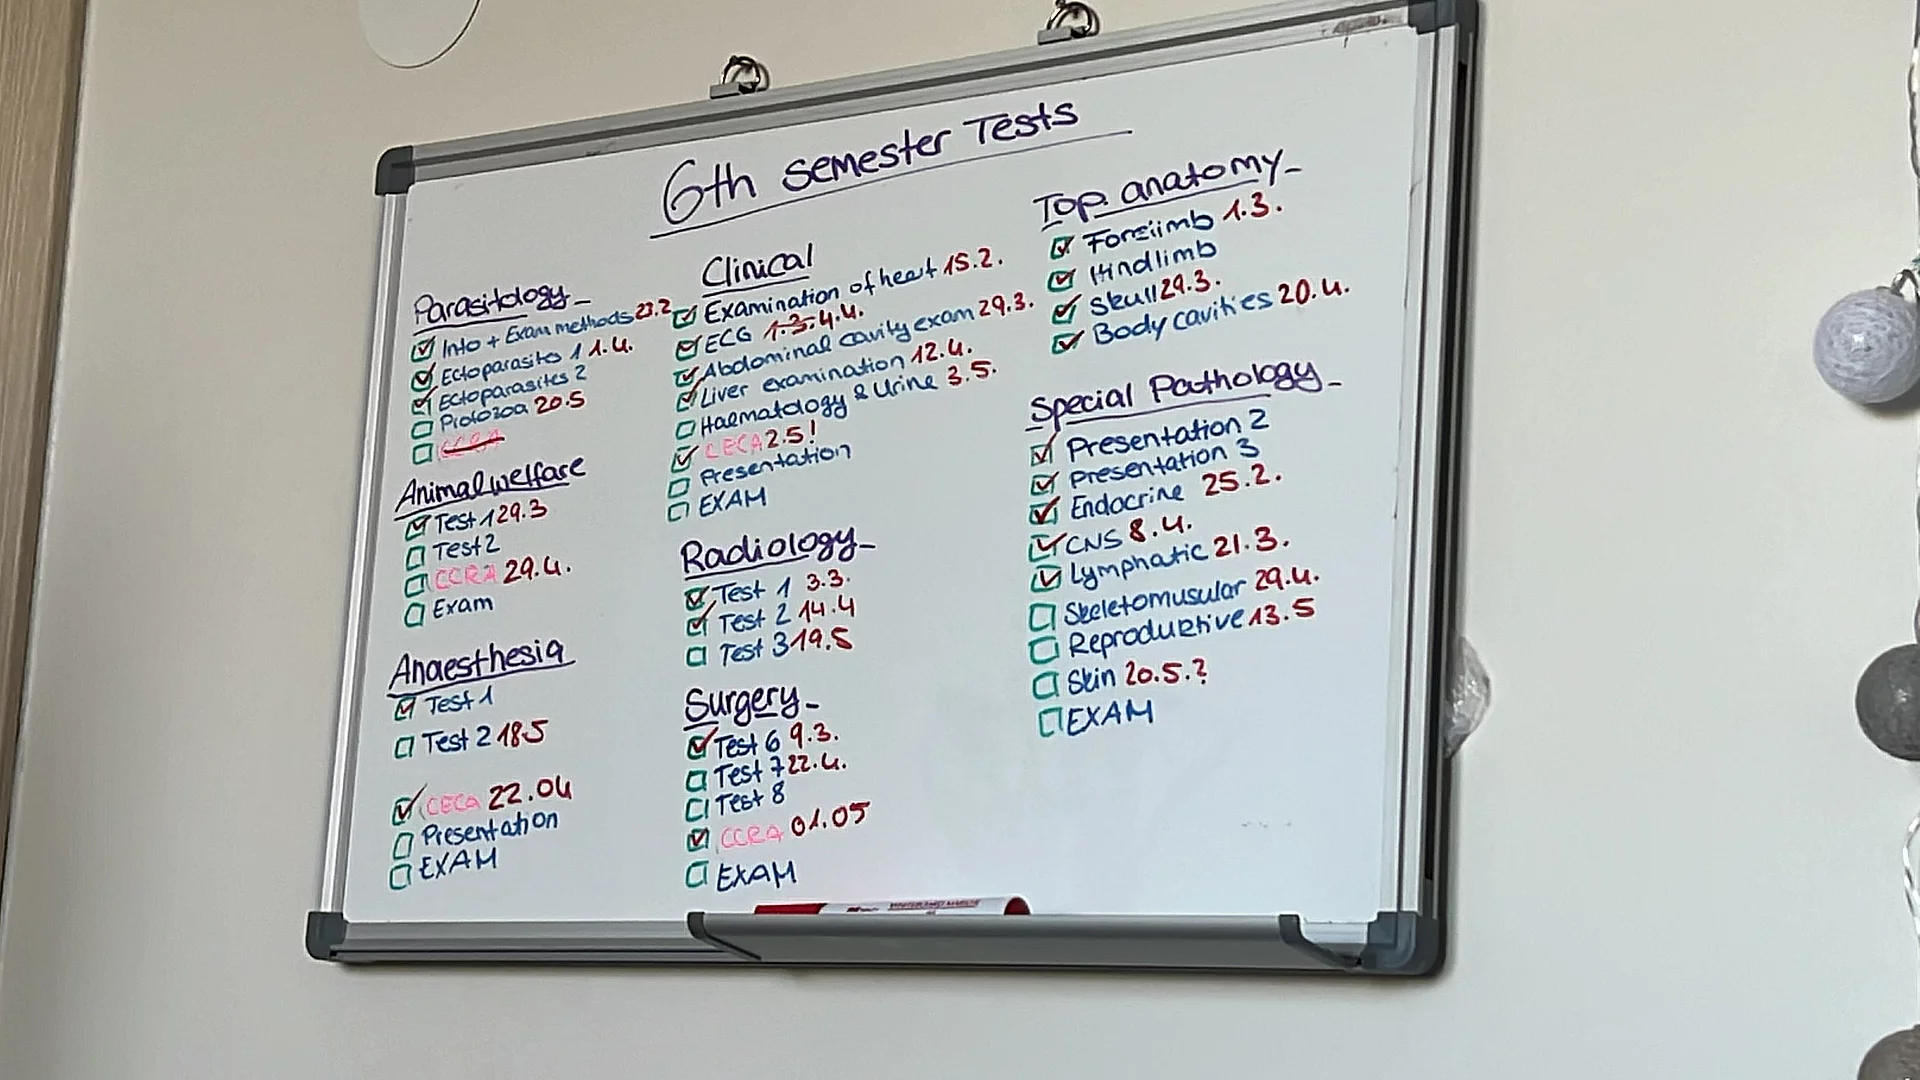 6th semester Tests
Parasitology
Into + Exam methods 23.2
Ectoparasites 1 1.4.
Ectoparasites 2
Protozoa 20.5
CCRA
Animal welfare
Test 1 29.3
Test 2
CCRA 29.4.
Exam
Anaesthesia
Test 1
Test 2 18.5
CECA 22.04
Presentation
EXAM
Clinical
Examination of heart 15.2.
ECG 1.3. 4.4.
Abdominal cavity exam 29.3.
Liver examination 12.4.
Haematology & Urine 3.5.
CECA 2.5!
Presentation
EXAM
Radiology
Test 1 3.3.
Test 2 14.4
Test 3 19.5
Surgery
Test 6 9.3.
Test 7 22.4.
Test 8
CCRA 01.05
EXAM
Top. anatomy
Forelimb 1.3.
Hindlimb
Skull 29.3.
Body cavities 20.4.
Special Pathology
Presentation 2
Presentation 3
Endocrine 25.2.
CNS 8.4.
Lymphatic 21.3.
Skeletomusular 29.4.
Reproduktive 13.5
Skin 20.5.?
EXAM